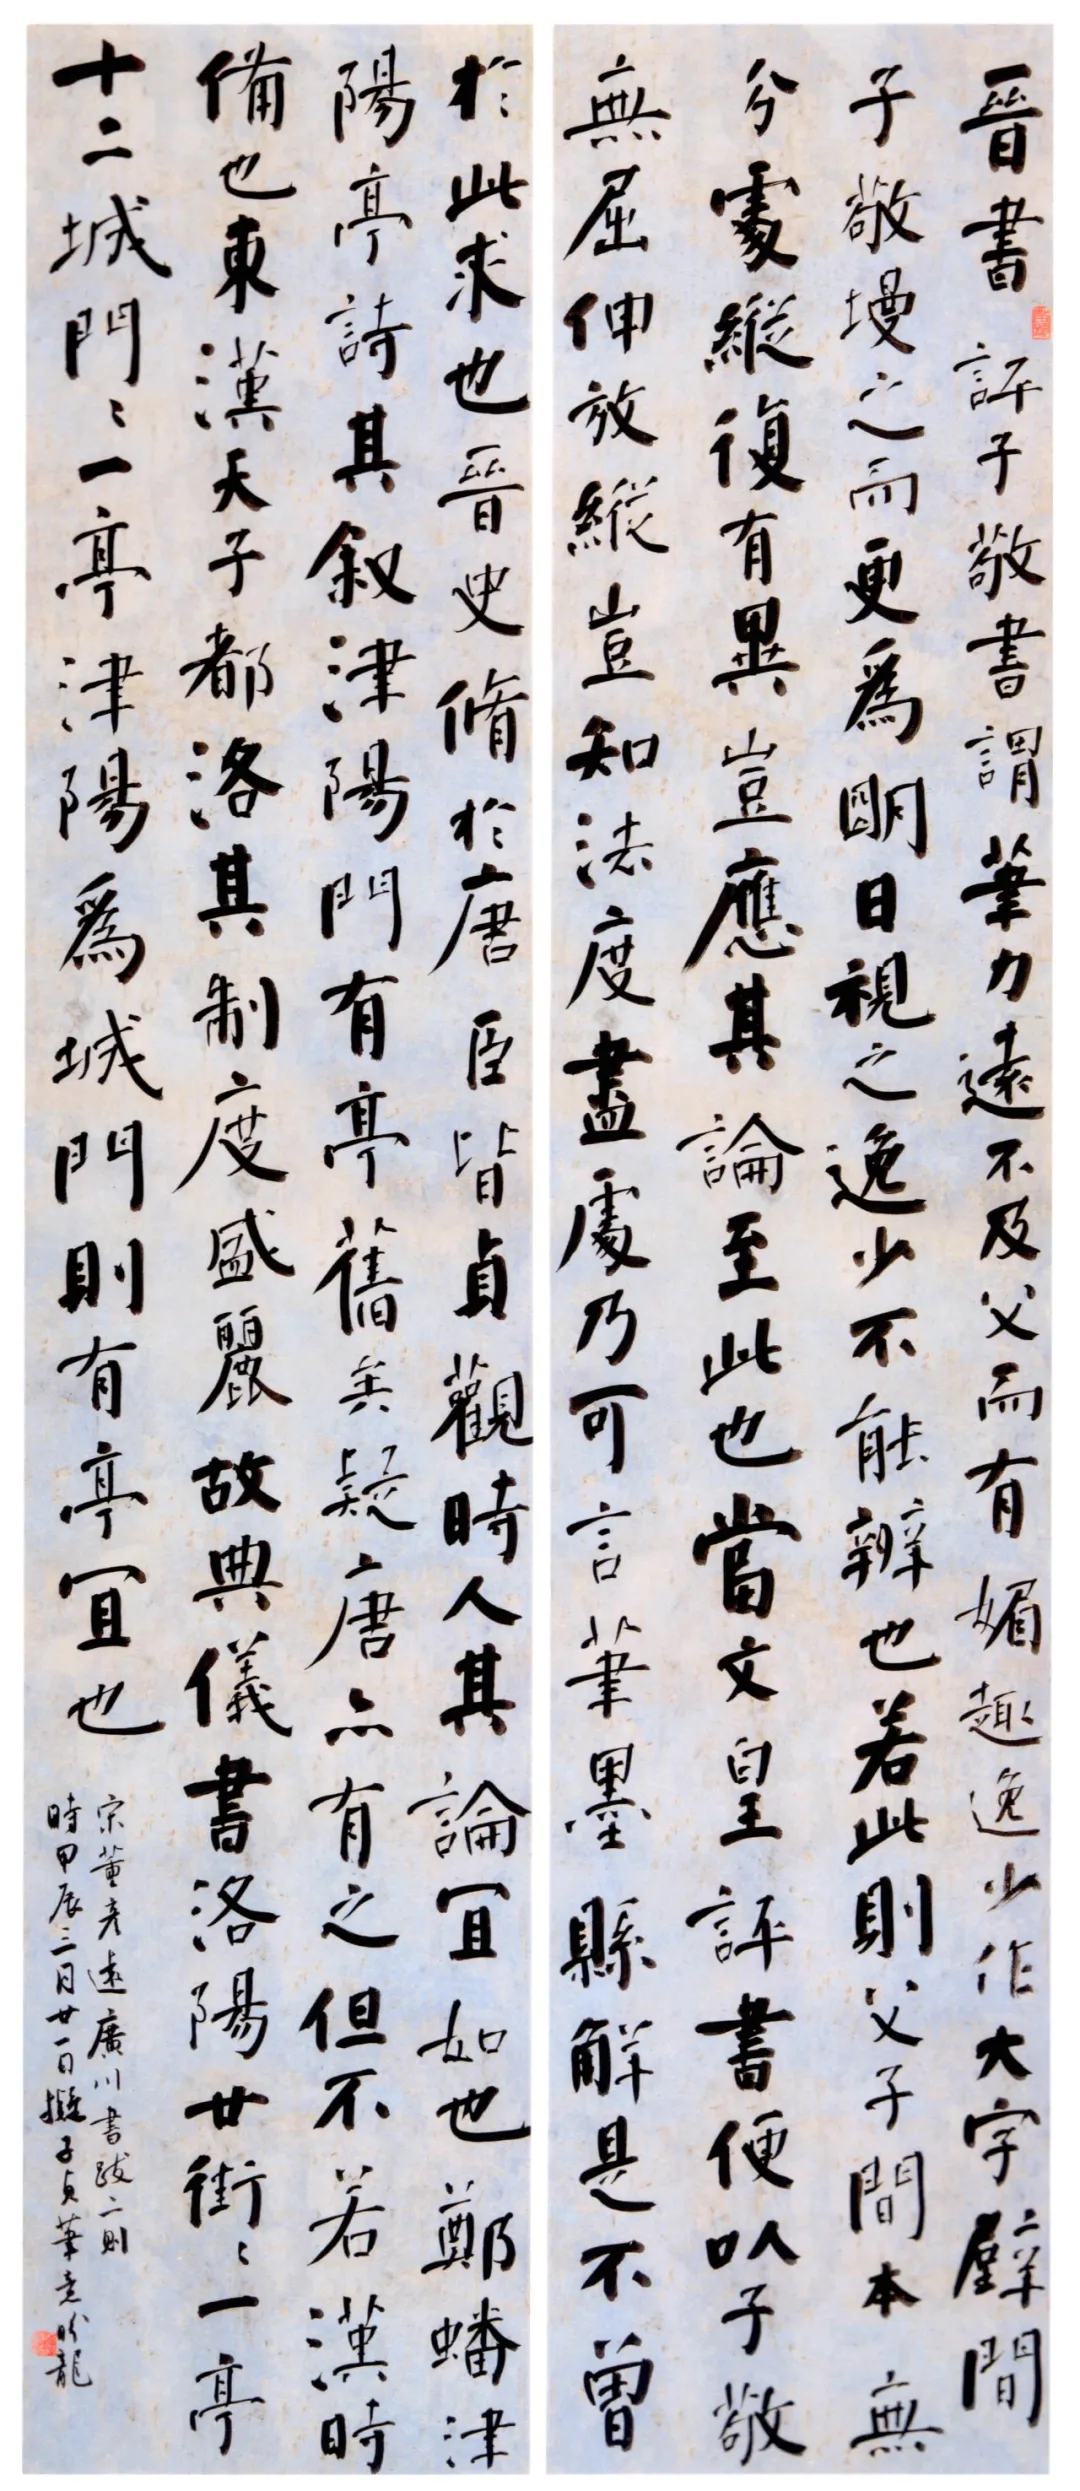 晉書評子敬書謂筆力遠不及父而有媚趣逸少作大字壁間
子敬墁之而更爲明日視之逸少不能辨也若此則父子間本無
分處縱復有異豈應其論至此也當文皇評書便以子敬
無屈伸放縱豈知法度盡處乃可言筆墨縣解是不曾
於此求也晉史脩於唐臣皆貞觀時人其論宜如也鄭蟠津
陽亭詩其叙津陽門有亭舊矣疑唐亦有之但不若漢時
備也東漢天子都洛其制度盛麗故典儀書洛陽廿街〻一亭
十二城門〻一亭津陽爲城門則有亭宜也
宋董彥遠廣川書跋二則
時甲辰三月廿一日擬子貞筆意